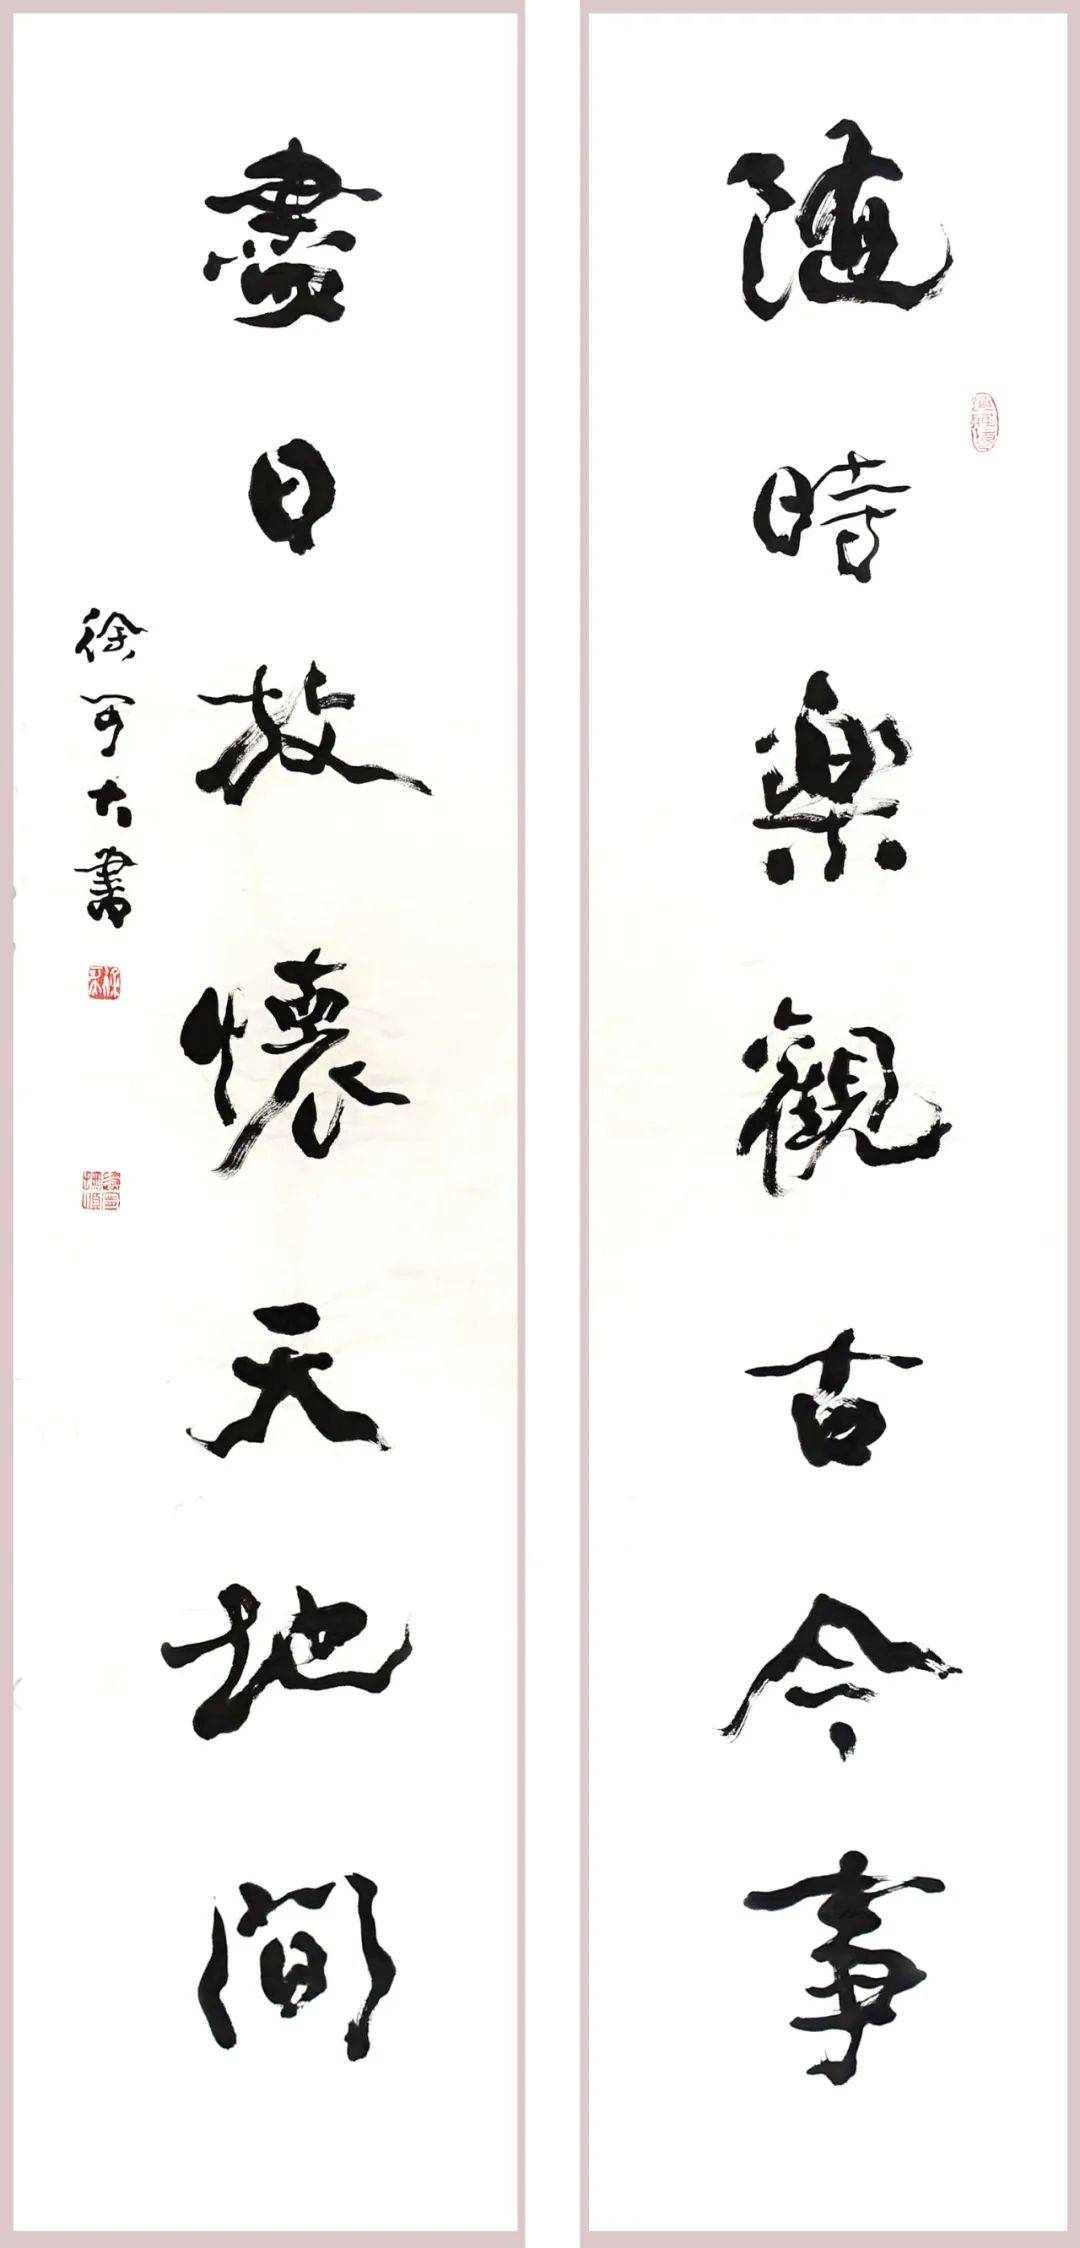 隨時樂觀古今事
盡日放懷天地間
徐可大書